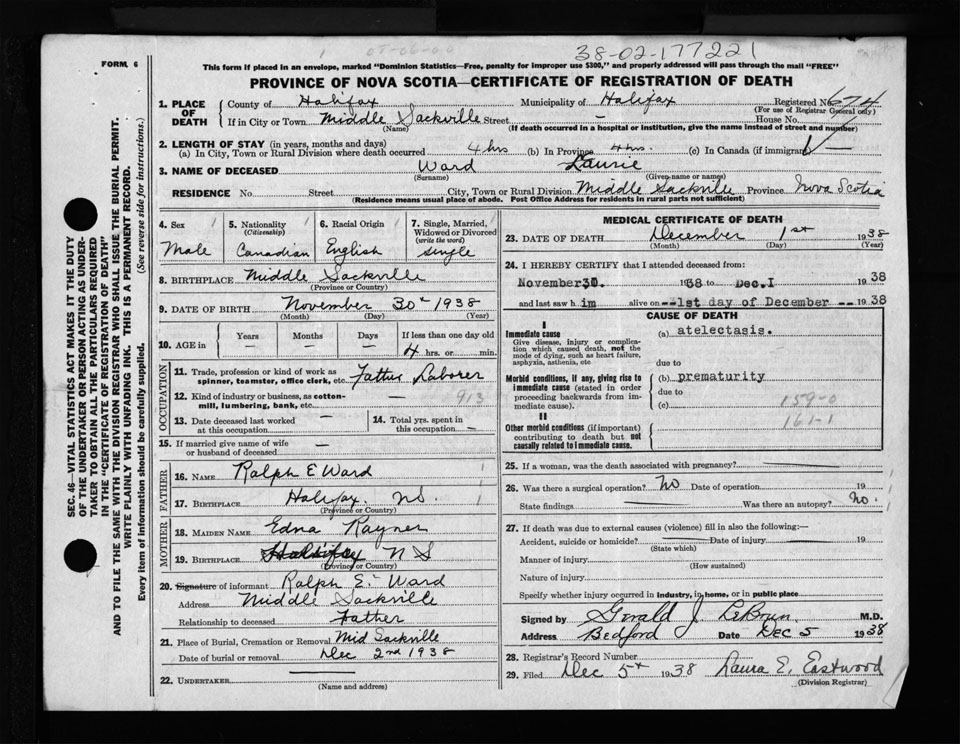 38-02-177221
FORM 6
This form if placed in an envelope, marked "Dominion Statistics—Free, penalty for improper use $300," and properly addressed will pass through the mail "FREE"
PROVINCE OF NOVA SCOTIA—CERTIFICATE OF REGISTRATION OF DEATH
SEC. 46—VITAL STATISTICS ACT MAKES IT THE DUTY
OF THE UNDERTAKER OR PERSON ACTING AS UNDER-
TAKER TO OBTAIN ALL THE PARTICULARS REQUIRED
IN THE "CERTIFICATE OF REGISTRATION OF DEATH"
AND TO FILE THE SAME WITH THE DIVISION REGISTRAR WHO SHALL ISSUE THE BURIAL PERMIT.
WRITE PLAINLY WITH UNFADING INK. THIS IS A PERMANENT RECORD.
Every item of information should be carefully supplied. (See reverse side for instructions.)
1. PLACE OF DEATH
County of Halifax Municipality of Halifax Registered No. 674
(For use of Registrar General only)
If in City or Town Middle Sackville Street — House No.
(Name) (If death occurred in a hospital or institution, give the name instead of street and number)
2. LENGTH OF STAY (in years, months and days)
(a) In City, Town or Rural Division where death occurred 4 hrs (b) In Province 4 hrs. (c) In Canada (if immigrant) —
3. NAME OF DECEASED Ward Laurie
(Surname) (Given name or names)
RESIDENCE No Street City, Town or Rural Division Middle Sackville Province Nova Scotia
(Residence means usual place of abode. Post Office Address for residents in rural parts not sufficient)
4. Sex
Male
5. Nationality
(Citizenship)
Canadian
6. Racial Origin
English
7. Single, Married, Widowed or Divorced
(write the word)
single
8. BIRTHPLACE Middle Sackville
(Province or Country)
9. DATE OF BIRTH November 30th 1938
(Month) (Day) (Year)
10. AGE in
Years —
Months —
Days —
If less than one day old
4 hrs. or min.
OCCUPATION
11. Trade, profession or kind of work as
spinner, teamster, office clerk, etc. Father Laborer
12. Kind of industry or business, as cotton-
mill, lumbering, bank, etc. — 913
13. Date deceased last worked
at this occupation —
14. Total yrs. spent in
this occupation —
15. If married give name of wife
or husband of deceased —
FATHER
16. NAME Ralph E Ward
17. BIRTHPLACE Halifax. NS.
(Province or Country)
MOTHER
18. MAIDEN NAME Edna Rayner
19. BIRTHPLACE Halifax N S
(Province or Country)
20. Signature of informant Ralph E. Ward
Address Middle Sackville
Relationship to deceased Father
21. Place of Burial, Cremation or Removal Mid Sackville
Date of burial or removal Dec 2nd 1938
22. UNDERTAKER —
(Name and address)
MEDICAL CERTIFICATE OF DEATH
23. DATE OF DEATH December 1st 1938
(Month) (Day) (Year)
24. I HEREBY CERTIFY that I attended deceased from:
November 30. 1938 to Dec. I 1938
and last saw h im alive on --1st day of December -- 1938
CAUSE OF DEATH
I
Immediate cause
Give disease, injury or complica-
tion which caused death, not the
mode of dying, such as heart failure,
asphyxia, asthenia, etc
(a) atelectasis.
due to
Morbid conditions, if any, giving rise to
immediate cause (stated in order
proceeding backwards from im-
mediate cause).
(b) prematurity
due to
(c) 159-0
161-1
II
Other morbid conditions (if important)
contributing to death but not
causally related to immediate cause.
25. If a woman, was the death associated with pregnancy? —
26. Was there a surgical operation? No Date of operation 19
State findings — Was there an autopsy? No.
27. If death was due to external causes (violence) fill in also the following:—
Accident, suicide or homicide? — Date of injury — 19
(State which)
Manner of injury
(How sustained)
Nature of injury
Specify whether injury occurred in industry, in home, or in public place
Signed by Gerald J. LeBrun M.D.
Address Bedford Date Dec 5 1938
28. Registrar's Record Number
29. Filed Dec 5th 1938 Laura E. Eastwood
(Division Registrar)